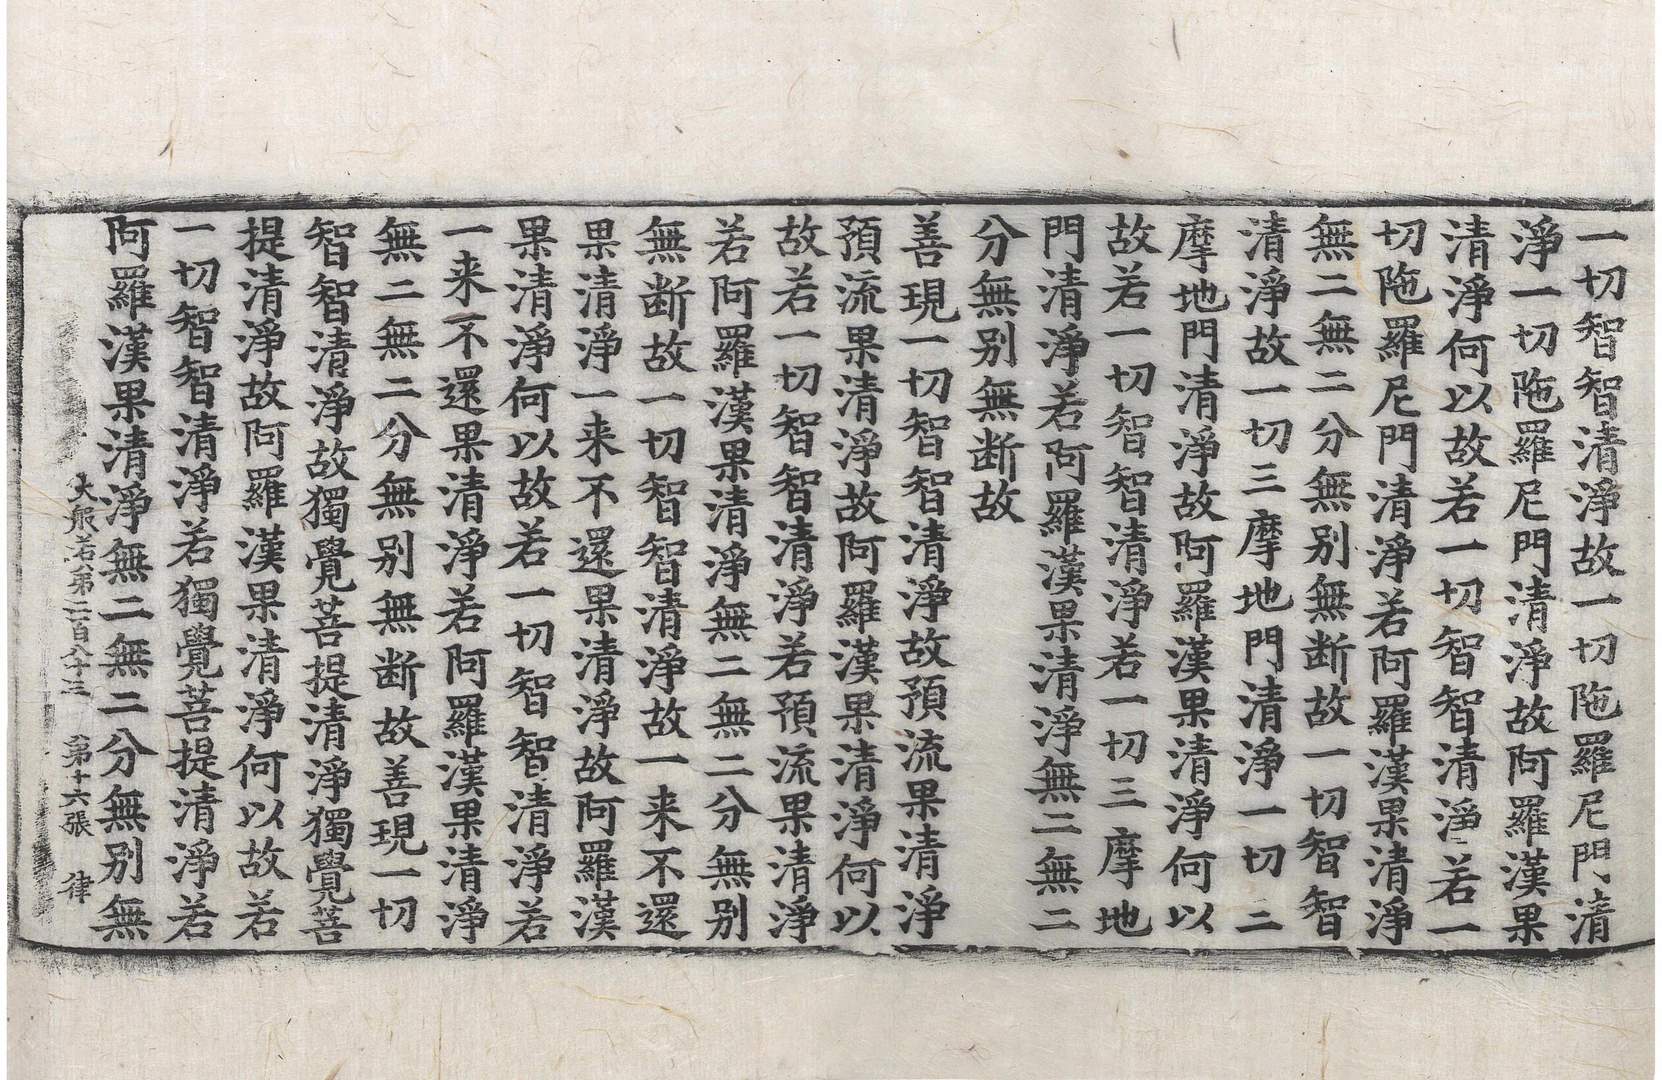 一切智智清淨故一切陁羅尼門清
淨一切陁羅尼門清淨故阿羅漢果
清淨何以故若一切智智清淨若一
切陁羅尼門清淨若阿羅漢果清淨
無二無二分無別無断故一切智智
清淨故一切三摩地門清淨一切三
摩地門清淨故阿羅漢果清淨何以
故若一切智智清淨若一切三摩地
門清淨若阿羅漢果清淨無二無二
分無別無断故
善現一切智智清淨故預流果清淨
預流果清淨故阿羅漢果清淨何以
故若一切智智清淨若預流果清淨
若阿羅漢果清淨無二無二分無別
無断故一切智智清淨故一来不還
果清淨一来不還果清淨故阿羅漢
果清淨何以故若一切智智清淨若
一来不還果清淨若阿羅漢果清淨
無二無二分無別無断故善現一切
智智清淨故獨覺菩提清淨獨覺菩
提清淨故阿羅漢果清淨何以故若
一切智智清淨若獨覺菩提清淨若
阿羅漢果清淨無二無二分無別無
大般若第二百八十三 第十六張 律